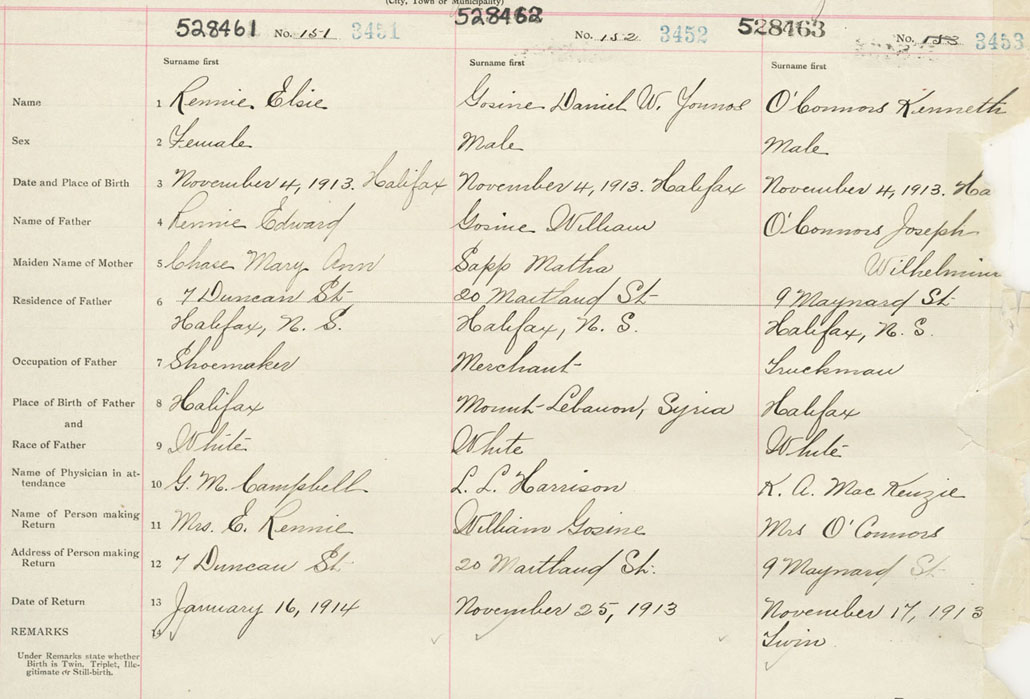 (City, Town or Municipality)
528461 No. 151 3451 528462 No. 152 3452 528463 No. 153 3453
Surname first Surname first Surname first
Name 1 Rennie Elsie Gosine Daniel W. Younos O'Connors Kenneth
Sex 2 Female Male Male
Date and Place of Birth 3 November 4, 1913. Halifax November 4, 1913. Halifax November 4, 1913. Ha
Name of Father 4 Rennie Edward Gosine William O'Connors Joseph
Maiden Name of Mother 5 Chase Mary Ann Sapp Matha Wilhelmin
Residence of Father 6 7 Duncan St. 20 Maitland St. 9 Maynard St.
Halifax, N. S. Halifax, N. S. Halifax, N. S.
Occupation of Father 7 Shoemaker Merchant Truckman
Place of Birth of Father 8 Halifax Mount Lebanon, Syria Halifax
and
Race of Father 9 White White White
Name of Physician in at-
tendance 10 G. M. Campbell L. L. Harrison K. A. Mac Kenzie
Name of Person making
Return 11 Mrs. E. Rennie William Gosine Mrs O'Connors
Address of Person making
Return 12 7 Duncan St. 20 Maitland St. 9 Maynard St.
Date of Return 13 January 16, 1914 November 25, 1913 November 17, 1913
REMARKS 14 Twin
Under Remarks state whether
Birth is Twin, Triplet, Ille-
gitimate or Still-birth.